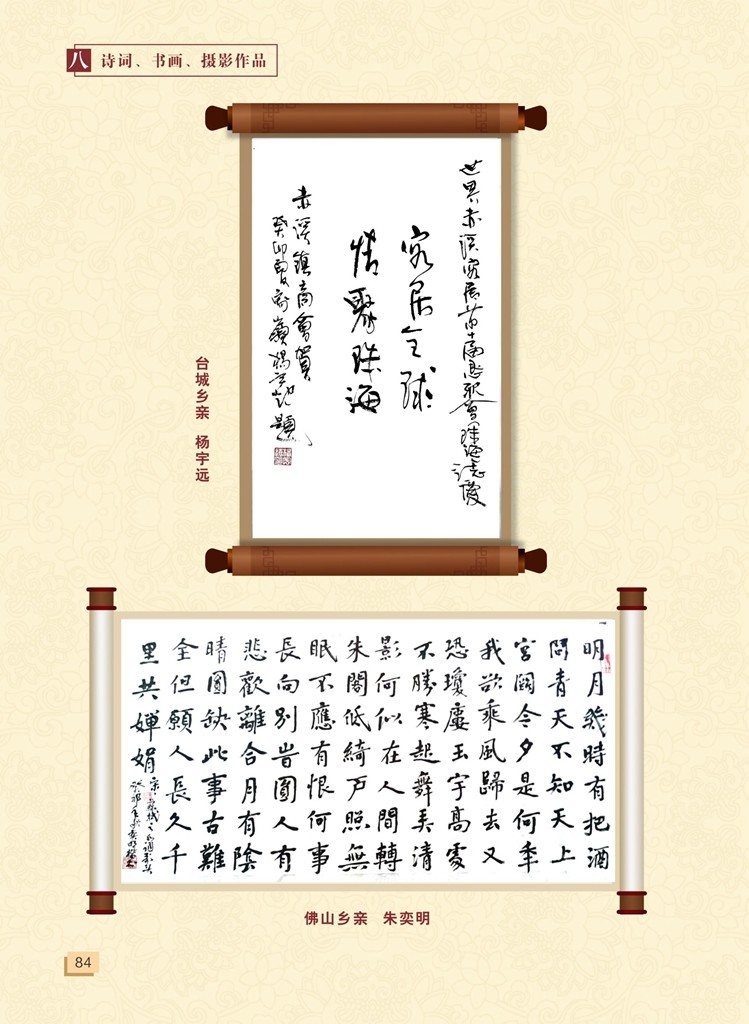 八 诗词、书画、摄影作品
世界赤溪客属第十届恳亲会珠海志庆
客居全球
情聚珠海
赤溪镇商会贺
台城乡亲 杨宇远
明月幾時有把酒
問青天不知天上
宮闕今夕是何年
我欲乘風歸去又
恐瓊樓玉宇高處
不勝寒起舞弄清
影何似在人間轉
朱閣低綺户照無
眠不應有恨何事
長向别皆圓人有
悲歡離合月有陰
晴圓缺此事古難
全但願人長久千
里共嬋娟
佛山乡亲 朱奕明
84